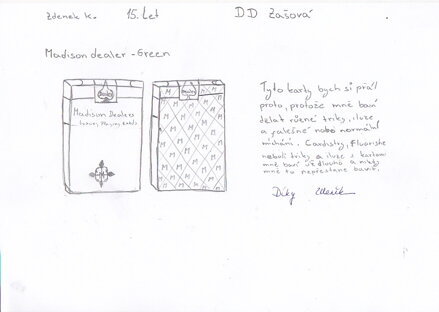 Zdenek K. 15. Let DD Zašová
Madison dealer - Green
Madison Dealers
Tyto karty bych si přál
proto, protože mně baví
dělat různé triky, iluze
a falešné nebo normální
míchání. Cardistry, Fluoriste
neboli triky a iluze s kartami
mně baví už dlouho a nikdy
mně to nepřestane bavit.
Díky Zdeněk